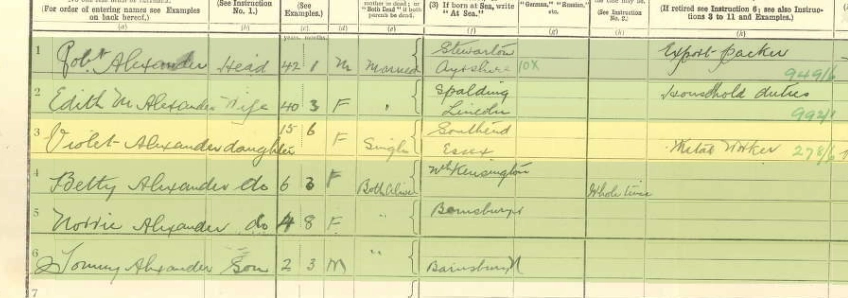 (For order of entering names see Examples on back hereof.)
(see Instruction No. 1.)
(See Examples.)
"Both Dead" if both parents be dead.)
(3) If born at Sea, write "At Sea."
"German," "Russian,"
(See Instruction No. 2.)
If retired see Instruction 6; see also Instructions 3 to 11 and Examples.)
(a) (b) (c) (d) (e) (f) (g) (h) (k)
years months.
1 Robt Alexander Head 42 1 M Married Stewarton Ayrshire 10X Export packer 949/6
2 Edith M Alexander Wife 40 3 F " Spalding Lincoln Household duties 992/1
3 Violet Alexander daughter 15 6 F Single Southend Essex Metal Worker 278/6
4 Betty Alexander do 6 3 F Both Alive Wt Kensington Whole time
5 Norrie Alexander do 4 8 F " Barnsbury
6 Tommy Alexander Son 2 3 M " Barnsbury N
7